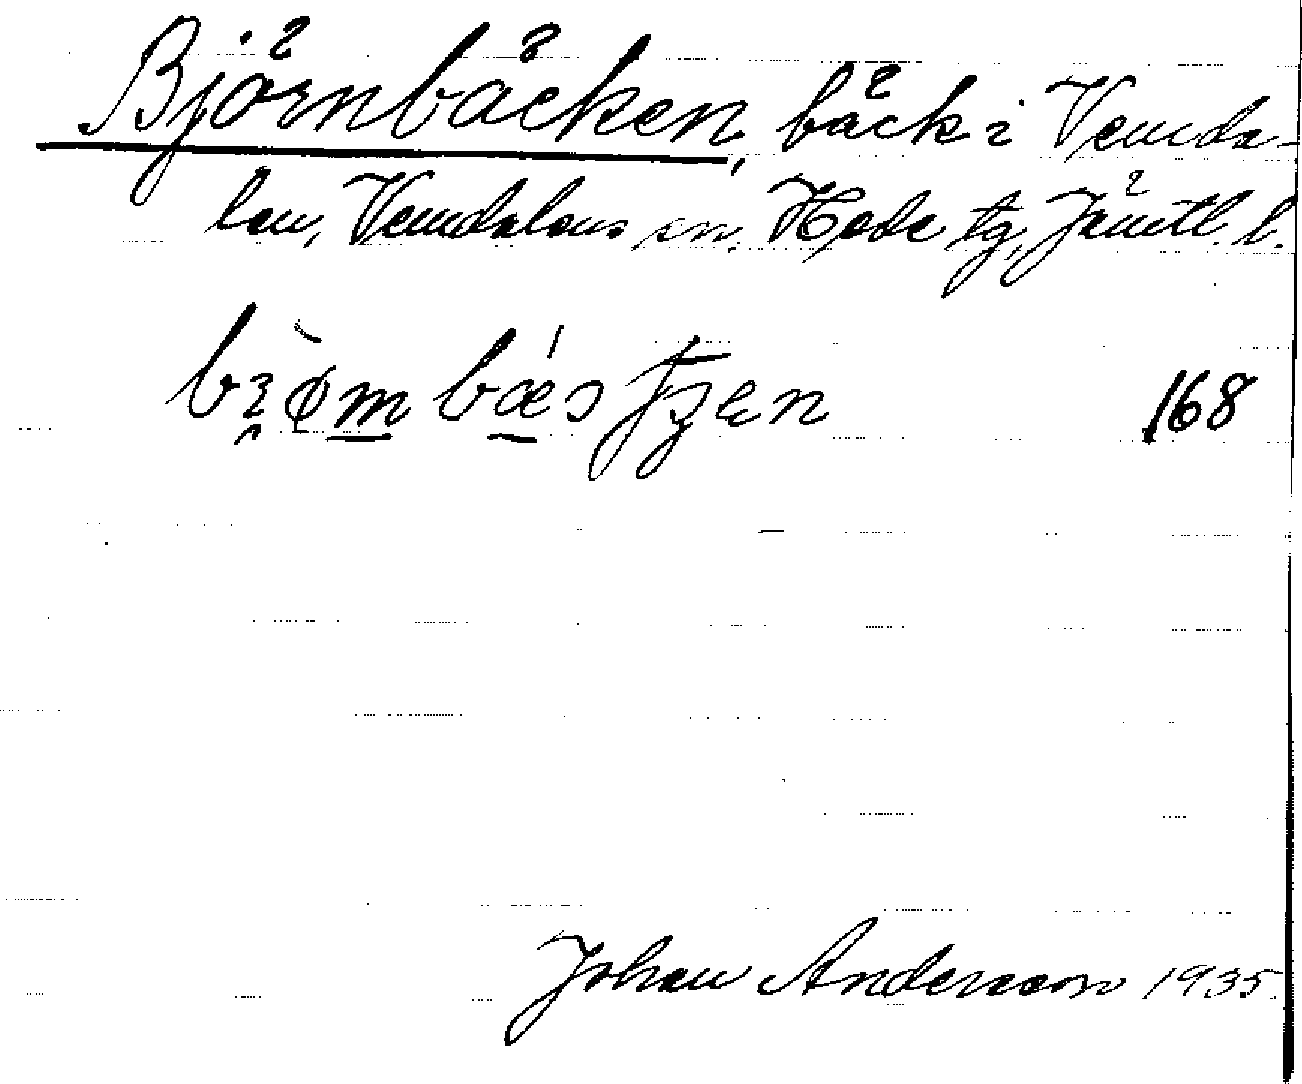 Björnbäcken, bäck i Vemda-
len, Vemdalens sn. Hede tg, Jämtl. l.
168
Johan Andersson 1935.